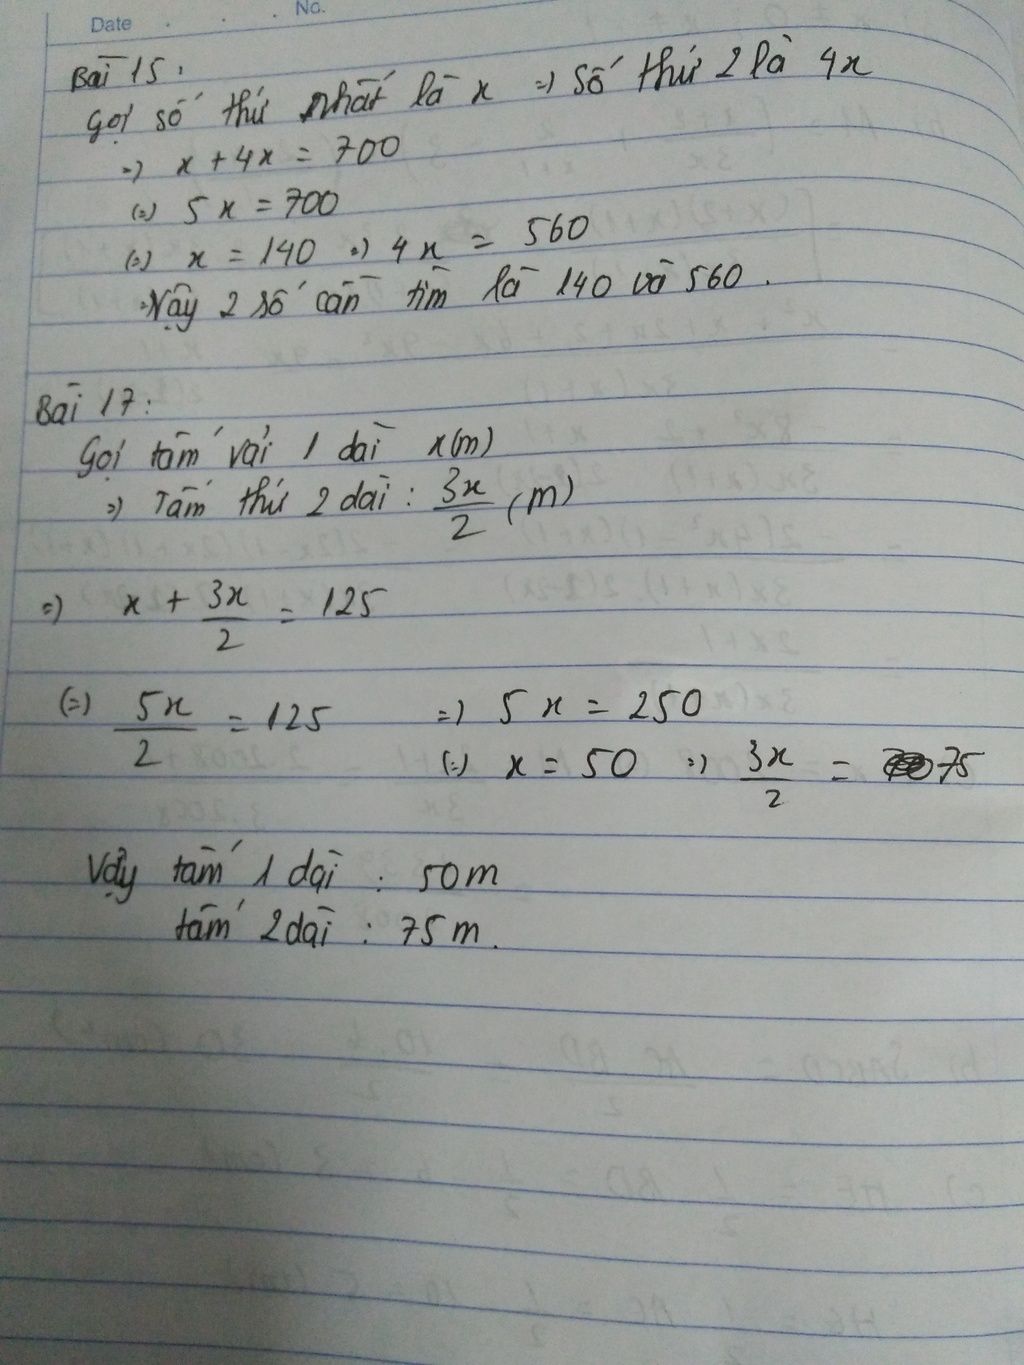 Date . . . No.
Bài 15:
Gọi số thứ nhất là x => Số thứ 2 là 4x
=> x + 4x = 700
(=) 5x = 700
(=) x = 140 => 4x = 560
=> Vậy 2 số cần tìm là 140 và 560.
Bài 17:
Gọi tấm vải 1 dài x(m)
=> Tấm thứ 2 dài : 3x/2 (m)
=> x + 3x/2 = 125
(=) 5x/2 = 125 => 5x = 250
(=) x = 50 => 3x/2 = 75
Vậy tấm 1 dài : 50m
tấm 2 dài : 75m.